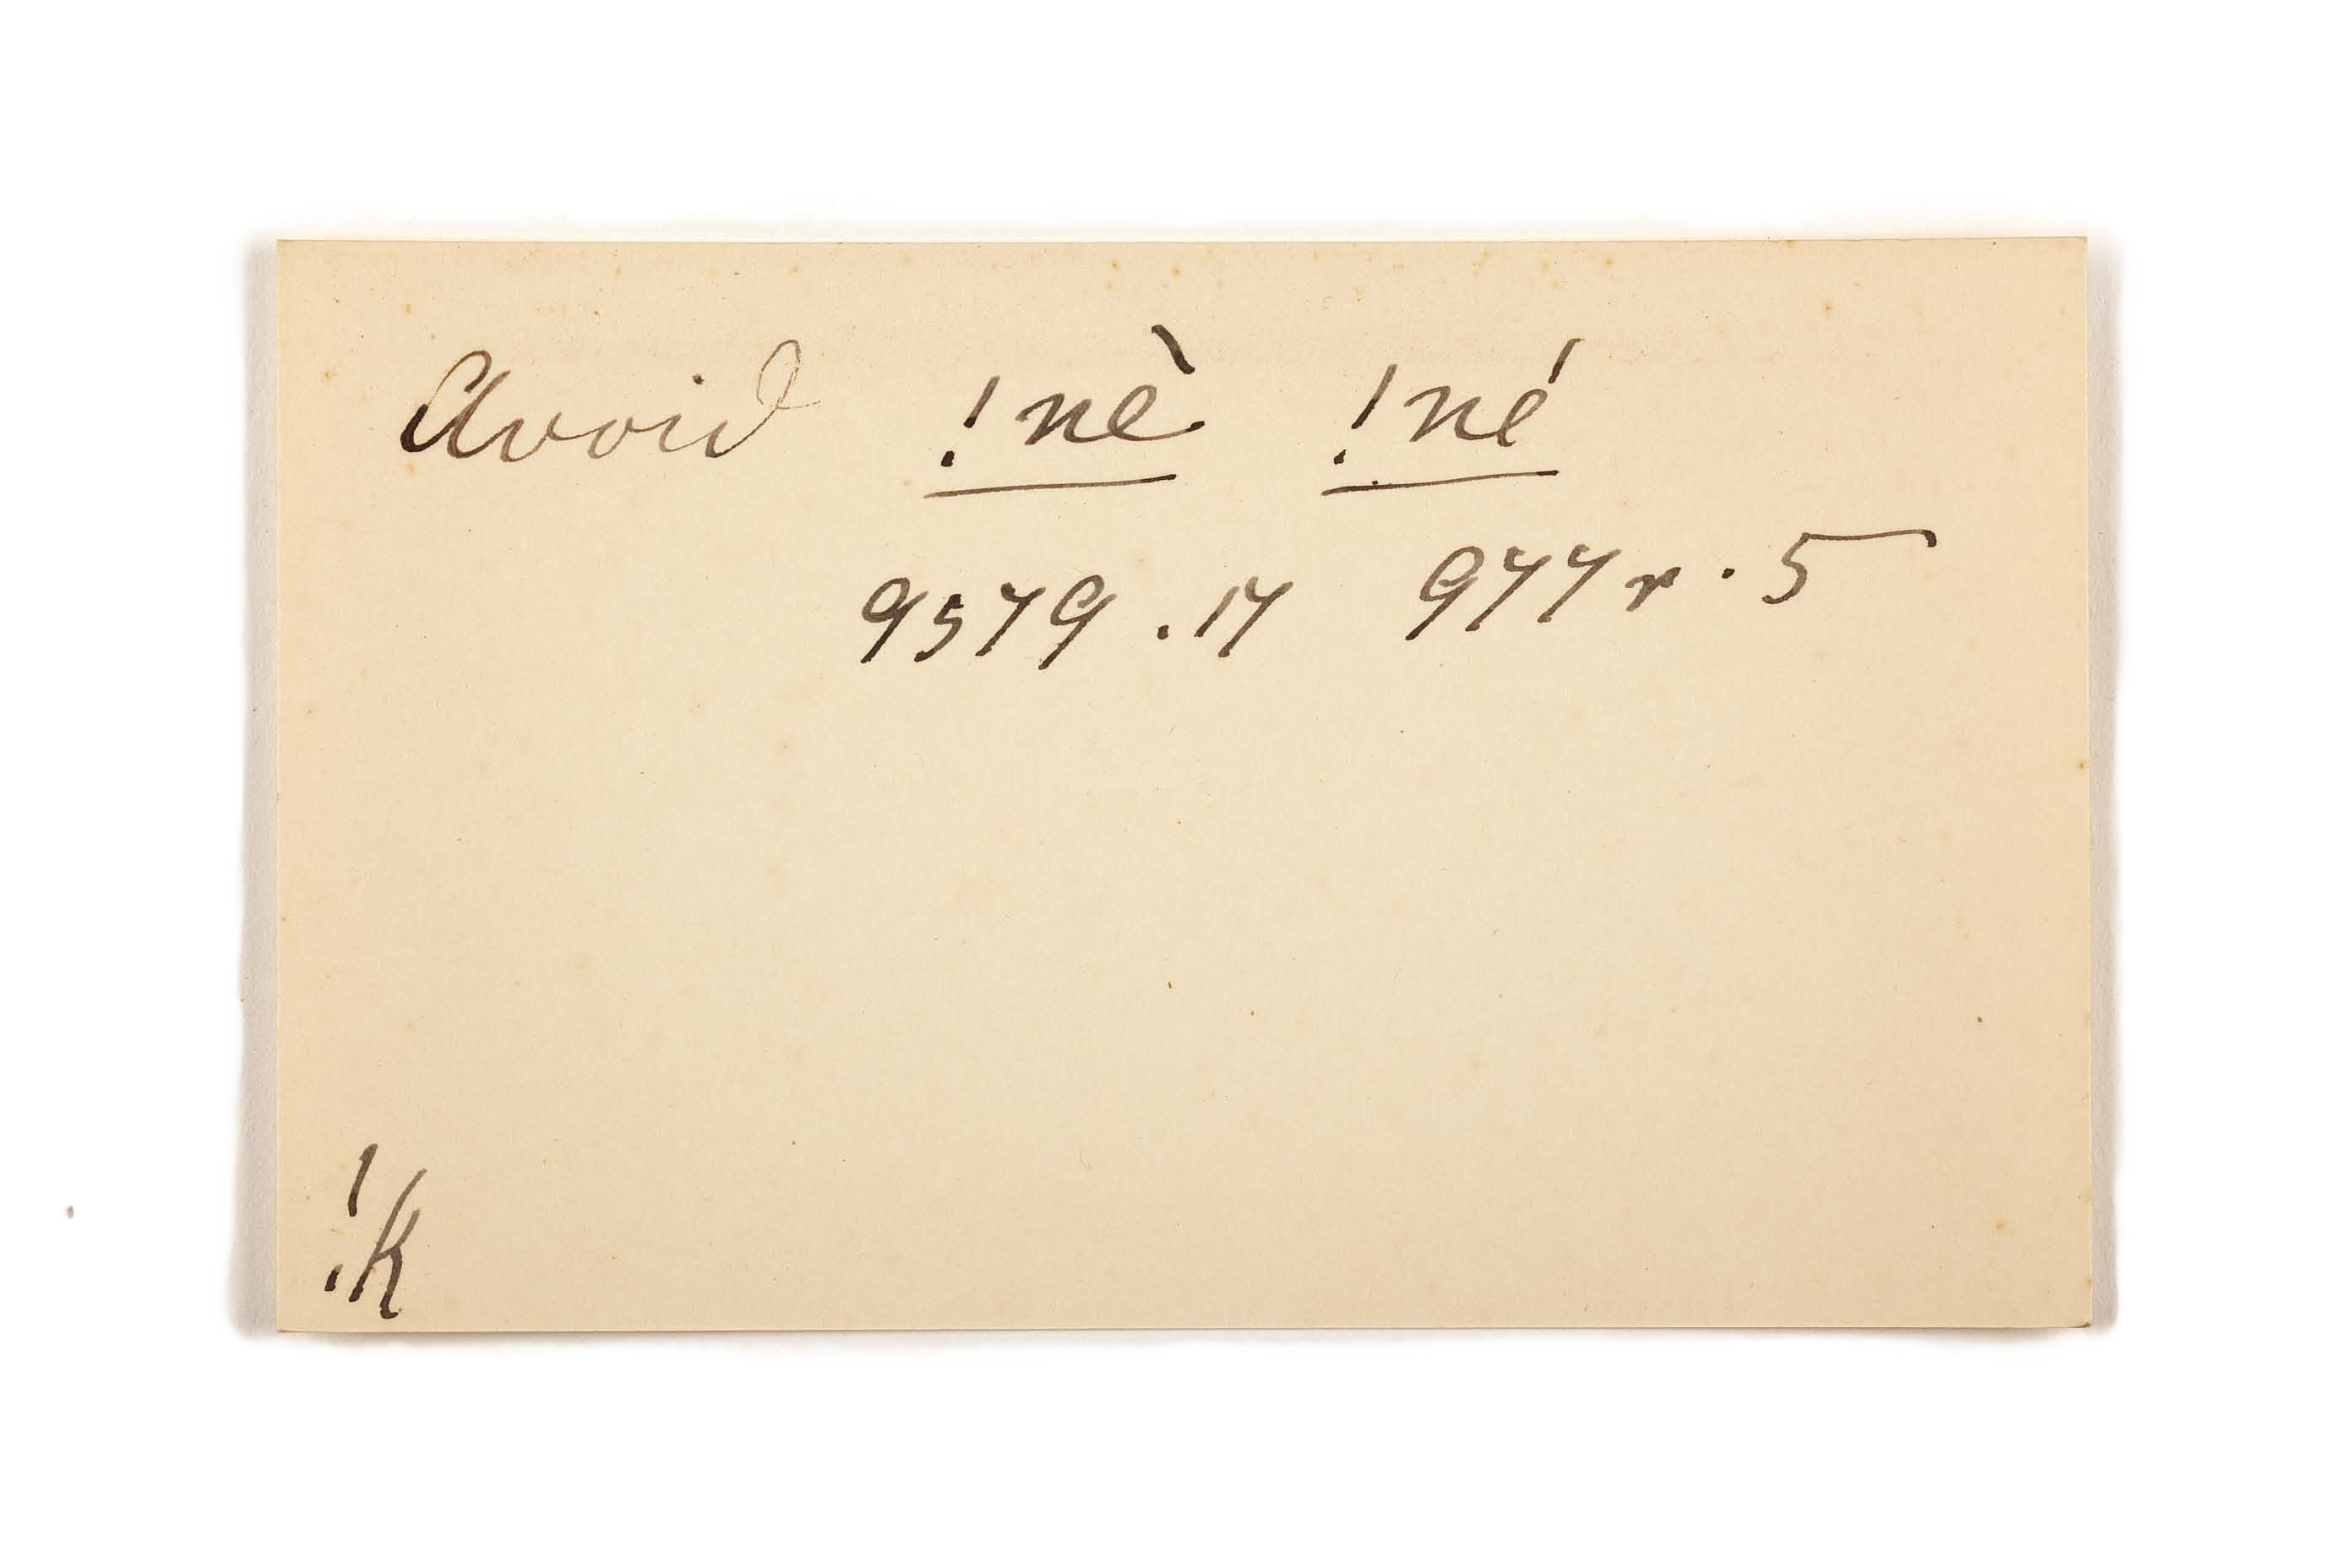 Avoid !nè !né
9579.17 977r.5
!k